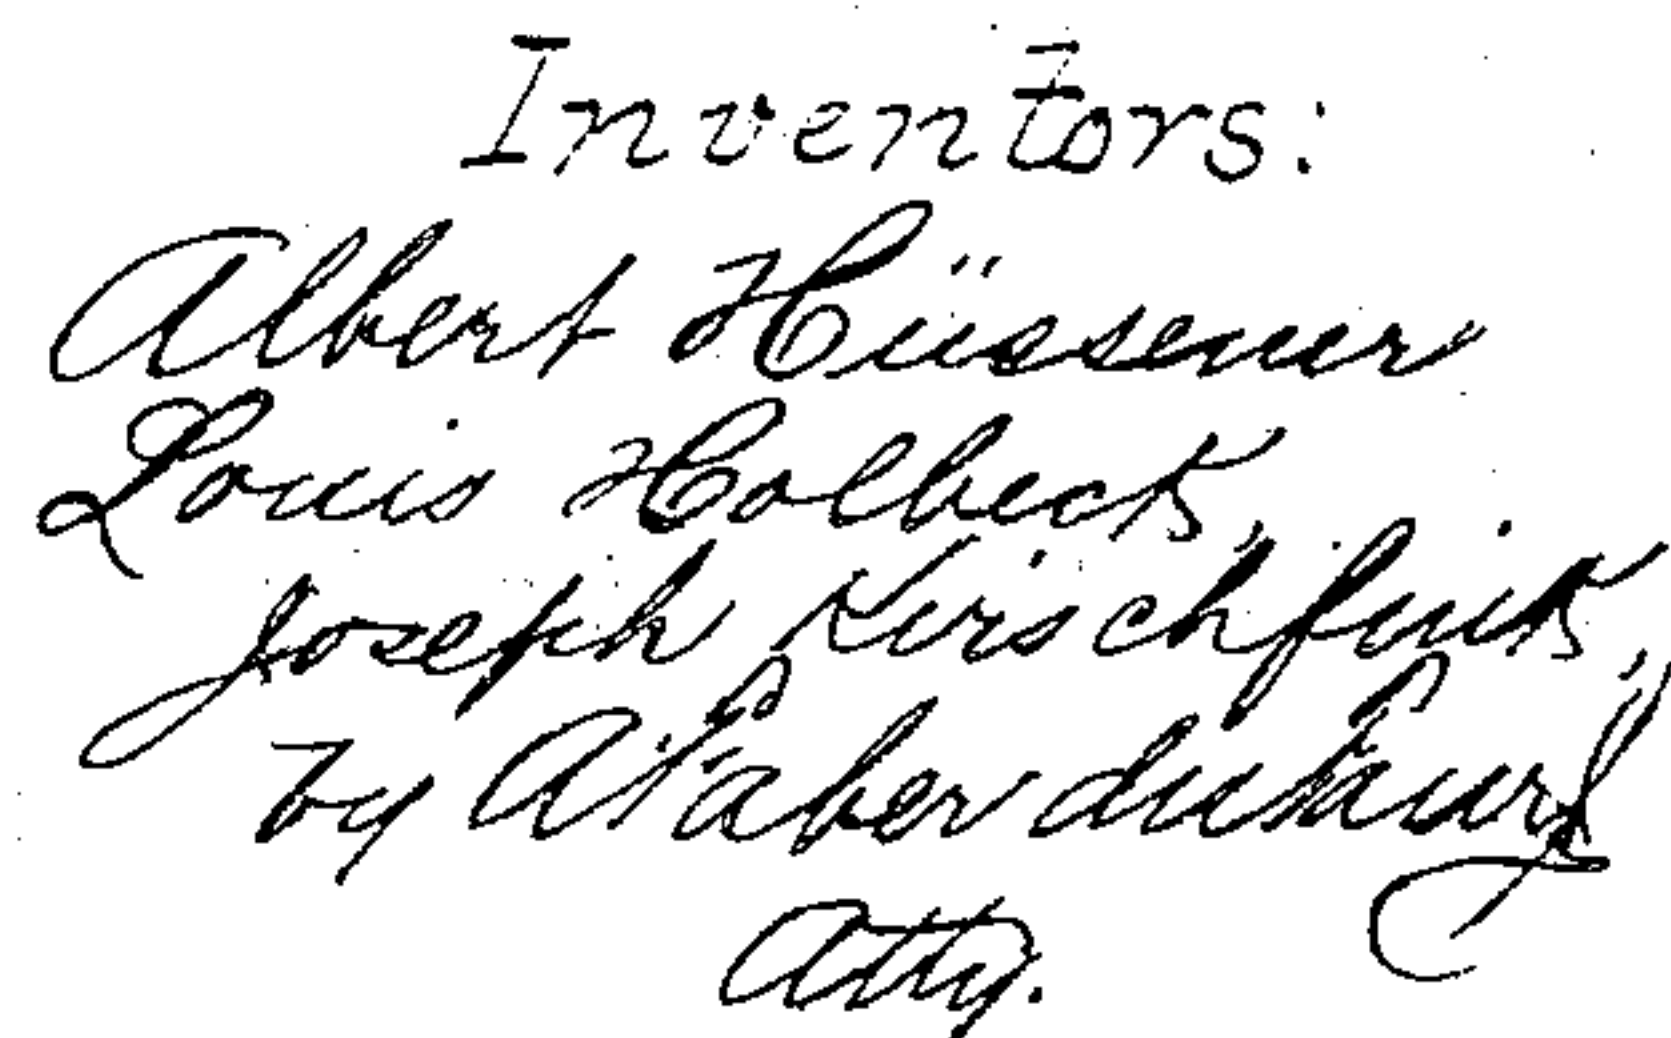 Inventors:
Albert Hüssener
Louis Holbeck,
Joseph Kirschfink,
by
Atty.